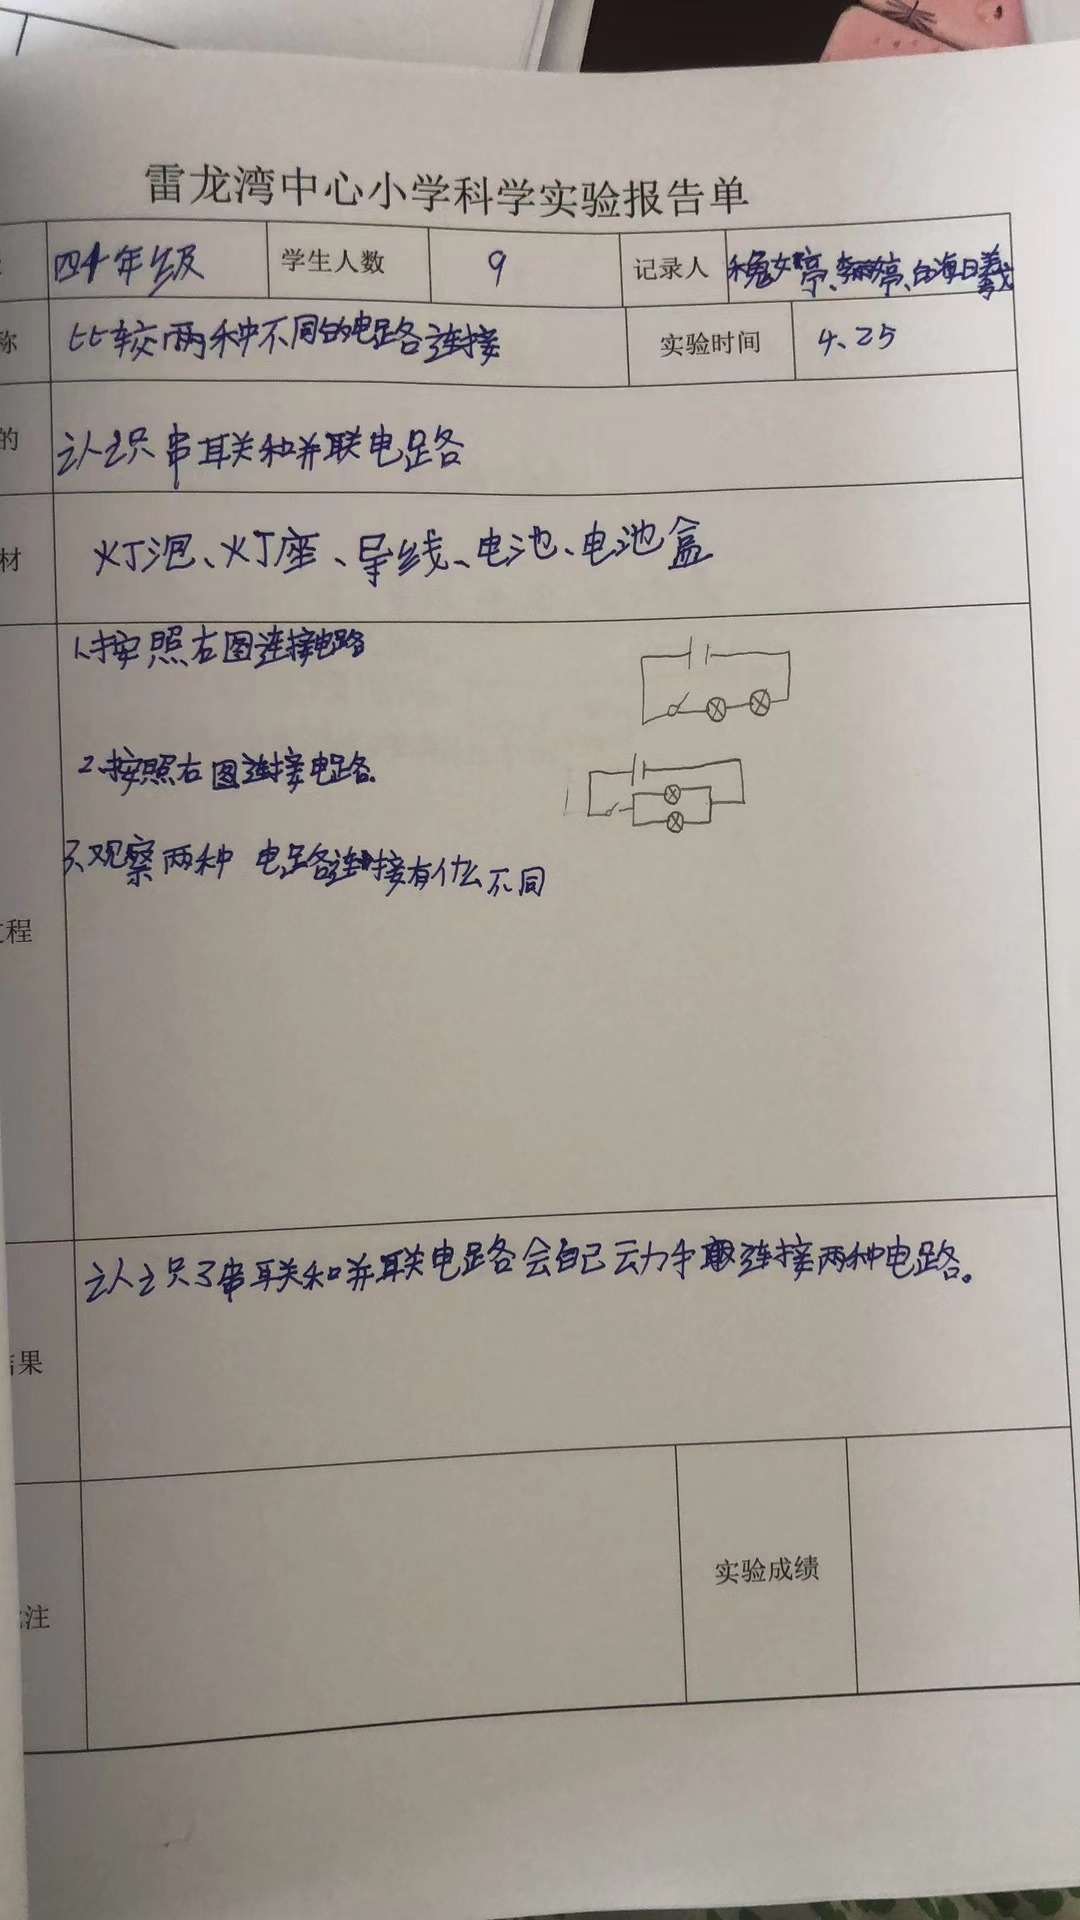 雷龙湾中心小学科学实验报告单
四年级 学生人数 9 记录人 婷、李婷、白海曦
称 比较两种不同的电路连接 实验时间 4、25
的 认识串联和并联电路
材 灯泡、灯座、导线、电池、电池盒
1、按照右图连接电路
2、按照右图连接电路.
3、观察两种电路连接有什么不同
过程
认识了串联和并联电路会自己动手连接两种电路。
结果
批注 实验成绩